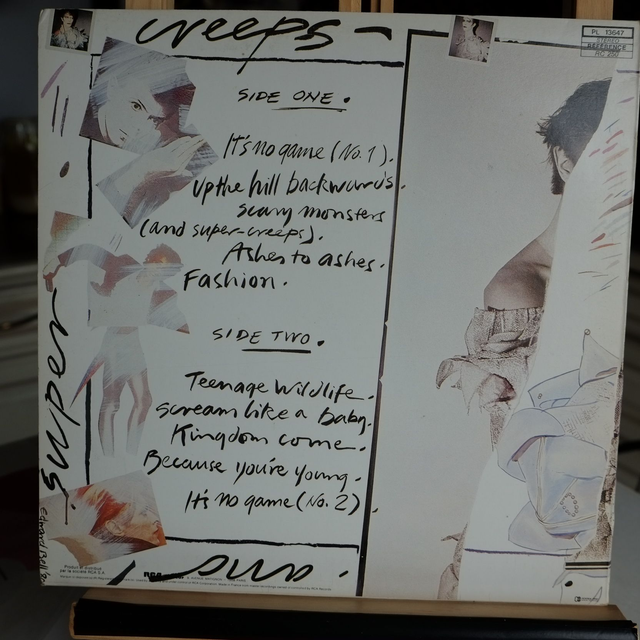 creeps
PL 13647
STEREO
REFERENCE
SIDE ONE.
It's no game (No. 1).
Up the hill backwards.
scary monsters
(and super-creeps).
Ashes to ashes.
Fashion.
SIDE TWO.
super
Teenage Wildlife.
scream like a baby.
Kingdom come.
Because you're young.
It's no game (No. 2).
RCA